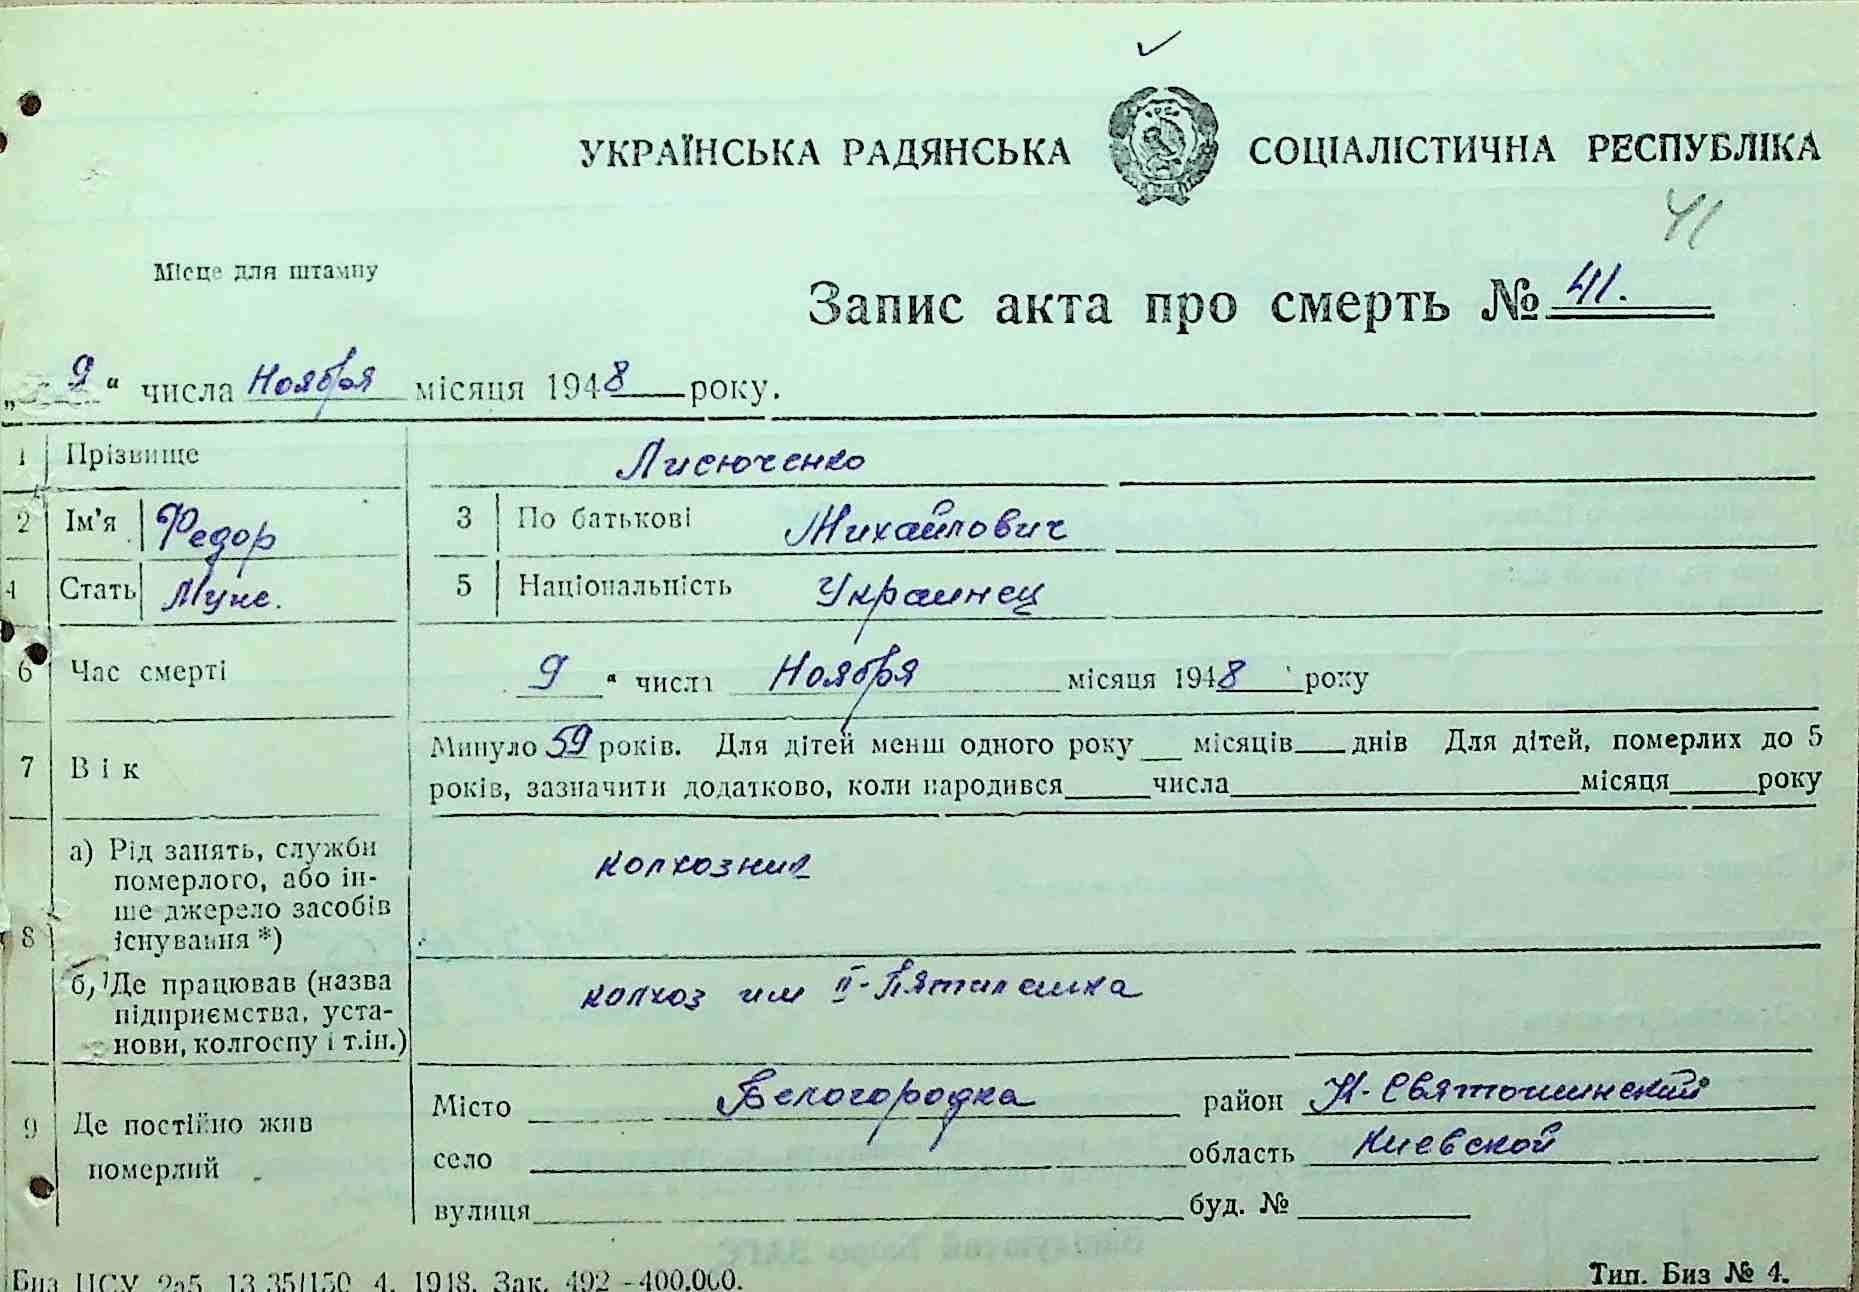 УКРАЇНСЬКА РАДЯНСЬКА СОЦІАЛІСТИЧНА РЕСПУБЛІКА
41
Місце для штампу
Запис акта про смерть № 41.
„9“ числа Ноября місяця 1948 року.
1 Прізвище Лисюченко
2 Ім'я Федор 3 По батькові Михайлович
4 Стать Муж. 5 Національність Украинец
6 Час смерті 9 “ числа Ноября місяця 1948 року
7 Вік Минуло 59 років. Для дітей менш одного року місяців днів Для дітей, померлих до 5
років, зазначити додатково, коли народився числа місяця року
8 а) Рід занять, служби
померлого, або ін-
ше джерело засобів
існування *)
колхозник
б) Де працював (назва
підприємства, уста-
нови, колгоспу і т.ін.)
колхоз им II-Пятилетка
9 Де постійно жив
померлий
Місто Белогородка район К-Святошинский
село область Киевской
вулиця буд. №
Биз ЦСУ 2а5. 13.35/150 4. 1948. Зак. 492 - 400.000.
Тип. Биз № 4.